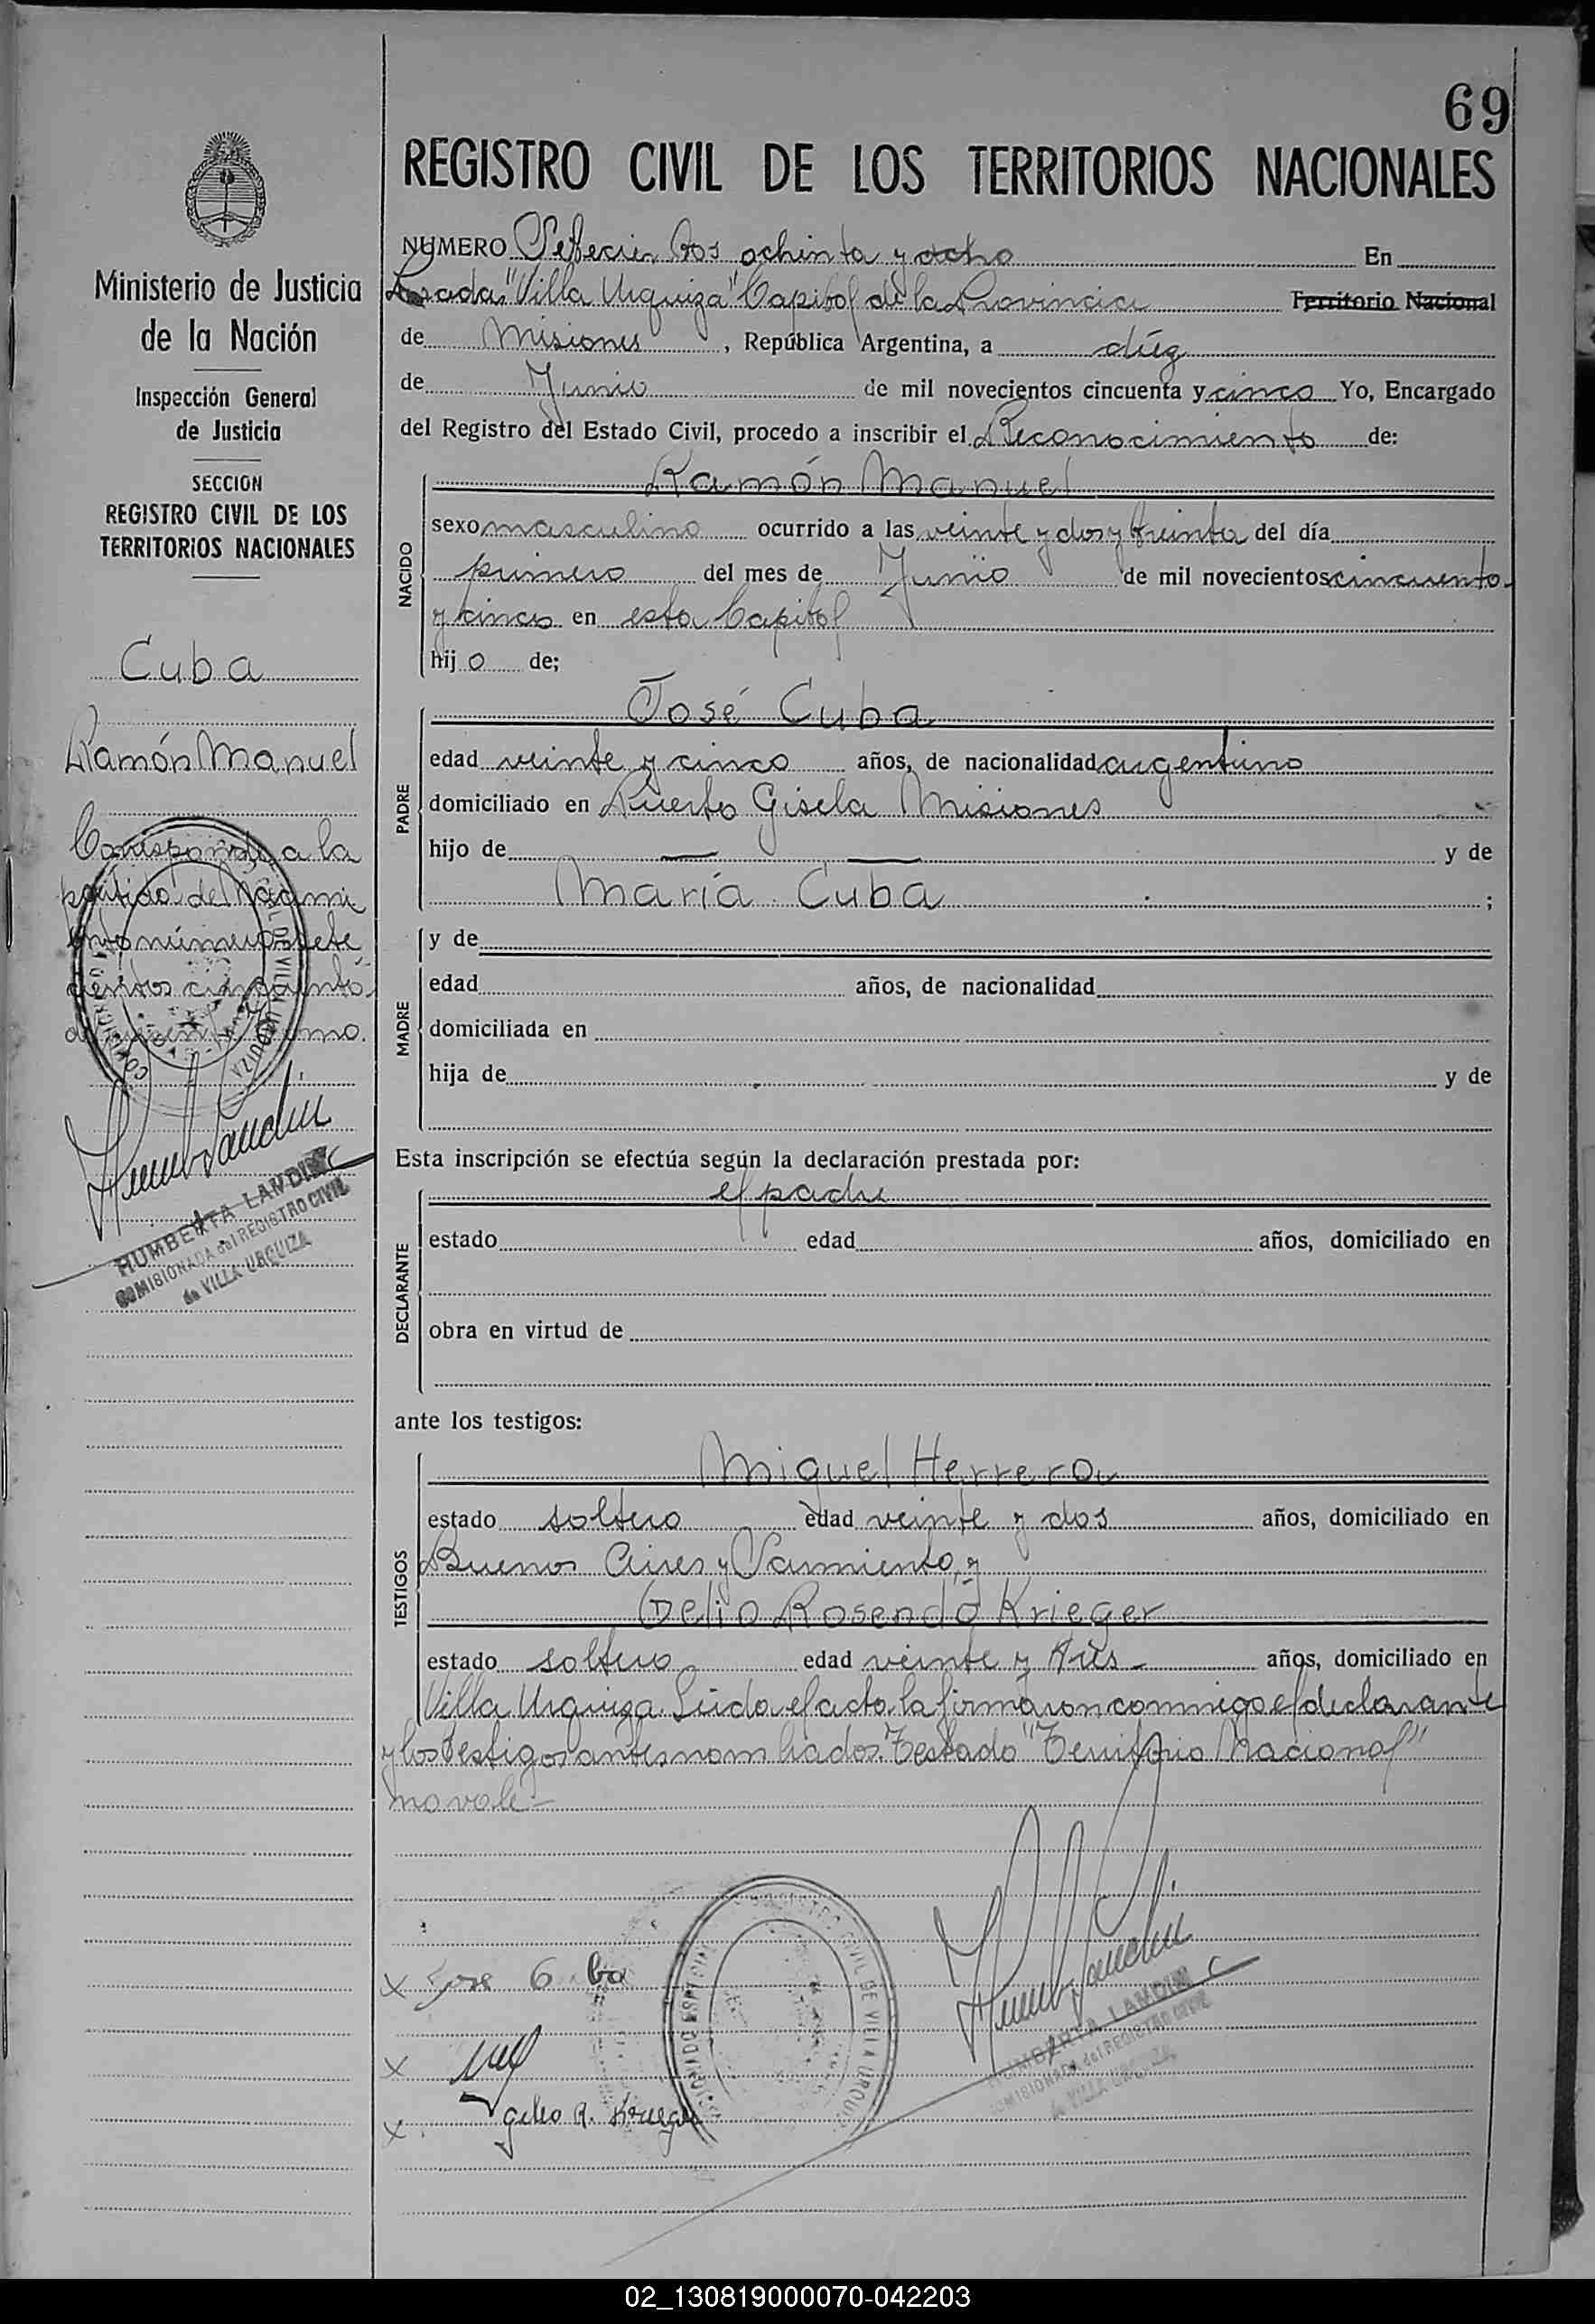 69
REGISTRO CIVIL DE LOS TERRITORIOS NACIONALES
Ministerio de Justicia
de la Nación
Inspección General
de Justicia
SECCION
REGISTRO CIVIL DE LOS
TERRITORIOS NACIONALES
Cuba
Ramón Manuel
Corresponde a la
partida de Nacimi
ento número sete
cientos cincuenta
NUMERO Setecientos ochinta y ocho En
Posadas "Villa Urquiza" Capital de la Provincia Territorio Nacional
de Misiones, República Argentina, a diez
de Junio de mil novecientos cincuenta y cinco Yo, Encargado
del Registro del Estado Civil, procedo a inscribir el Reconocimiento de:
NACIDO
Ramón Manuel
sexo masculino ocurrido a las veinte y dos y treinta del día
primero del mes de Junio de mil novecientos cincuenta
y cinco en esta Capital
hijo de;
PADRE
José Cuba
edad veinte y cinco años, de nacionalidad argentino
domiciliado en Puerto Gisela Misiones
hijo de — — y de
María Cuba ;
MADRE
y de
edad años, de nacionalidad
domiciliada en
hija de y de
Esta inscripción se efectúa según la declaración prestada por:
DECLARANTE
el padre
estado edad años, domiciliado en
obra en virtud de
ante los testigos:
TESTIGOS
Miguel Herrera
estado soltero edad veinte y dos años, domiciliado en
Buenos Aires y Sarmiento, y
Delio Rosendo Krieger
estado soltero edad veinte y tres - años, domiciliado en
Villa Urquiza. Leída el acta la firmaron conmigo el declarante
y los testigos antes nombrados. Testado "Territorio Nacional"
no vale -
HUMBERTA LANDINI
COMISIONADA del REGISTRO CIVIL
de VILLA URQUIZA
CIVIL DE VILLA URQUIZA
x Jose Cuba
x
x Delio R. Krieger
HUMBERTA LANDINI
COMISIONADA del REGISTRO CIVIL
de VILLA URQUIZA
02_130819000070-042203